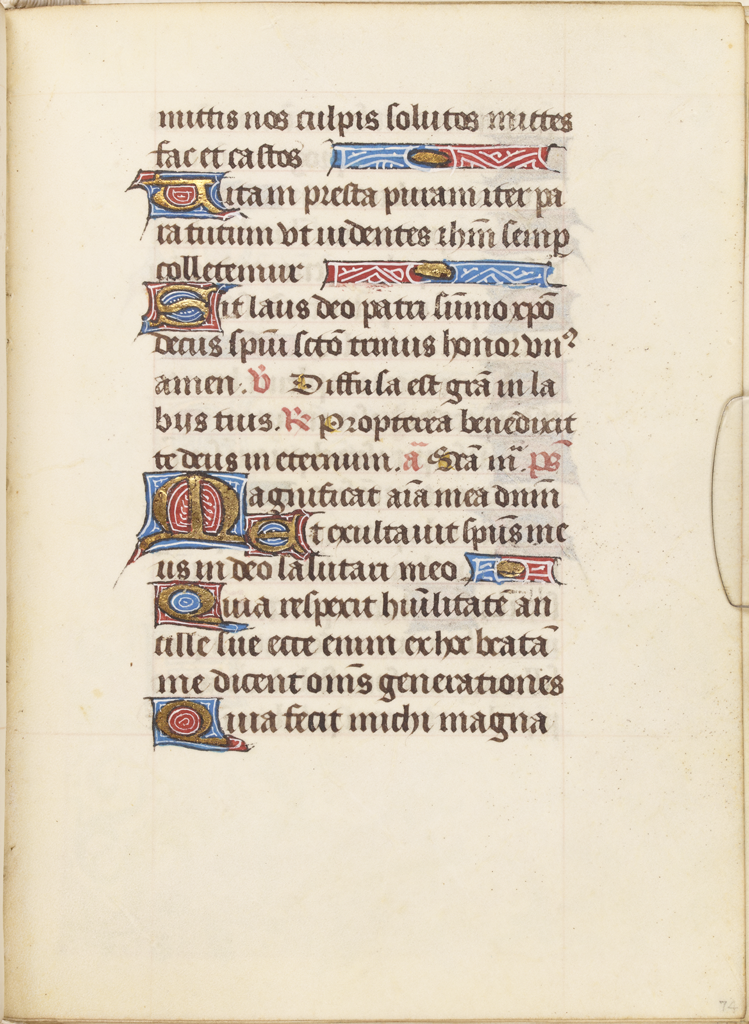 mittis nos culpis solutos mittes
fac et castos
Vitam presta puram iter pa
ra tutum vt uidentes ihm̄ semp
colletemur
Sit laus deo patri sūmo xpō
decus spiū sctō trinus honor vnꝰ
amen. V̄ Diffusa est grā in la
biis tuis. R̄ Propterea benedixit
te deus in eternum. a̅ Scā m̄. ps̄
Magnificat aīa mea dnm̄
Et exultauit spūs me
us in deo salutari meo
Quia respexit hūilitatē an
cille sue ecce enim ex hoc beatā
me dicent om̄s generationes
Quia fecit michi magna
74